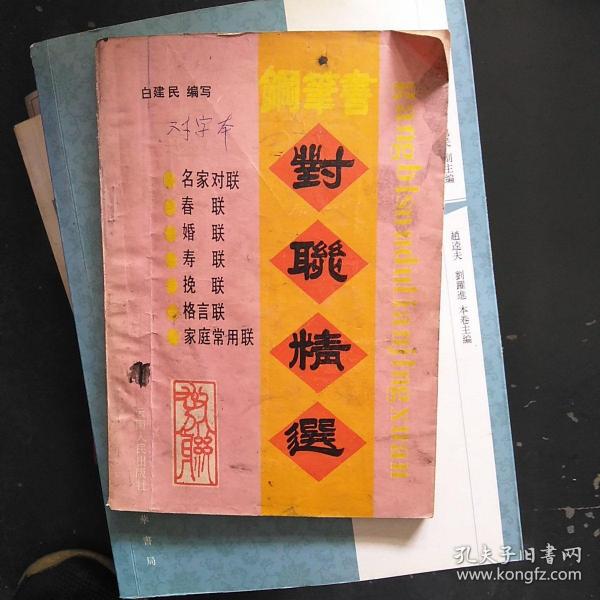 白建民 编写
对字本
名家对联
春 联
婚 联
寿 联
挽 联
格言联
家庭常用联
鋼筆書
對
聯
情
選
gangbishuduilianjingxuan
人民出版社
副主編
趙逵夫 劉躍進 本卷主編
華書局
孔夫子旧书网
www.kongfz.com